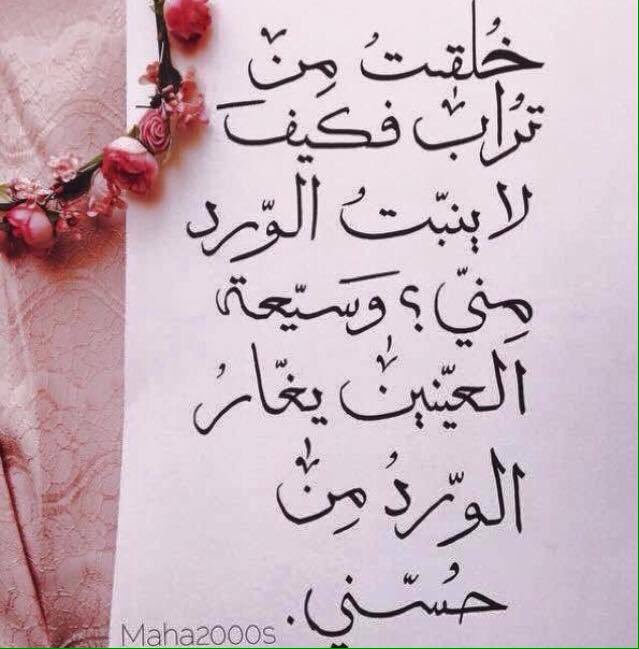 خُلقت من
تُراب فكيفَ
لا ينبّتُ الوّرد
مِنيّ؟ وَسيّعة
العيّنين يغّارُ
الوّردُ مِن
حسُّني.
Maha2000s